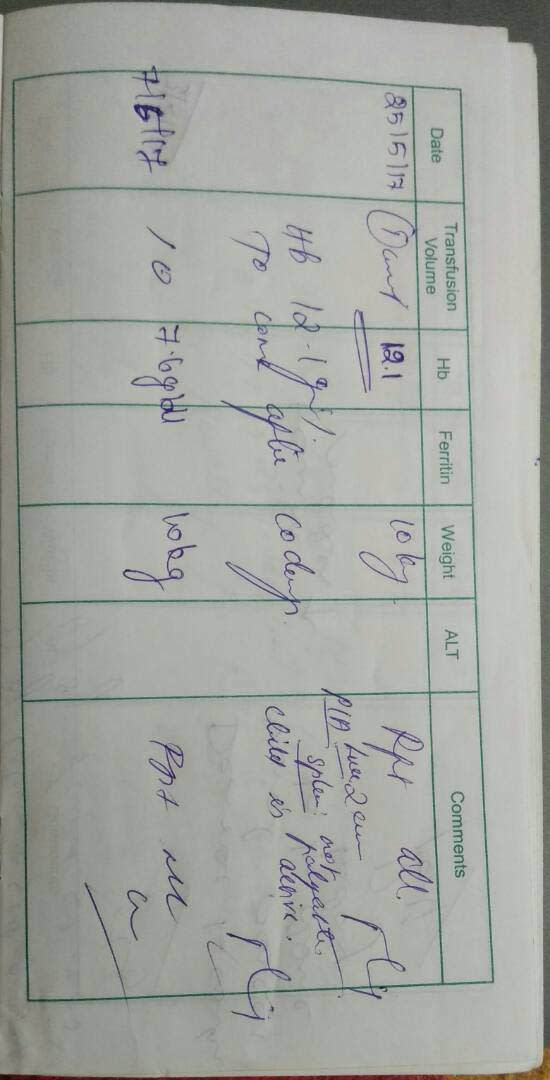 Date Transfusion Volume Hb Ferritin Weight ALT Comments
25/5/17 12.1 10kg Rpt all.
P/A liver 2cm
Hb 12.1 gm%. spleen: not palpable.
To come after child is active.
7/6/17 10 7.6g/dl 10kg Rpt